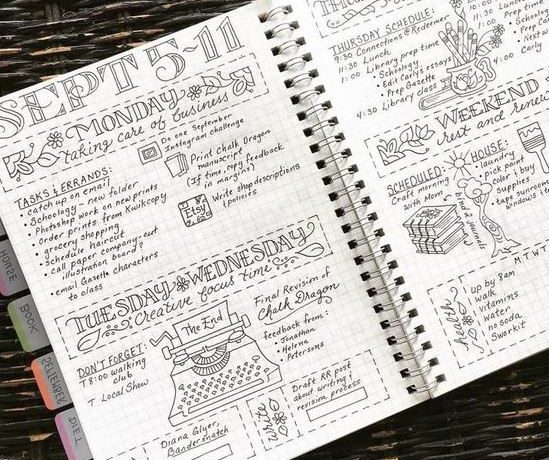 SEPT 5-11
MONDAY
taking care of business
TASKS & ERRANDS:
• catch up on email
• Schoology - new folder
• Photoshop work on new prints
• Order prints from Kwikcopy
• grocery shopping
• Schedule haircut
• Call paper company: cut
illustration board?
• email Gazette characters
to class
Do one September
Instagram challenge
Print Chalk Dragon
manuscript
(If time, copy feedback
in margins)
Etsy
Write shop descriptions
& policies
TUESDAY WEDNESDAY
Creative focus time
DON'T FORGET:
T 8:00 walking
club
T Local Show
The End
Final Revision of
Chalk Dragon
feedback from:
• Jonathan
• Helena
• Petersons
Diana Glyer,
Bandersnatch
Write
Draft RR post
about writing &
revision process
HOUSE
BOOK
DIET
THURSDAY SCHEDULE:
9:30 Connections @ Redeemer
11:30 Lunch
1:00 Library prep time
• Schoology
• Edit Carly's essay
• Prep Gazette
4:30 Library class
11:00
1:00 Lunch
Prep time
4:00
Carly
WEEKEND
rest and renew
SCHEDULED:
Craft morning
with Mom
HOUSE:
• laundry
• pick paint
color & buy
supplies
MTWT
health
up by 8am
walk
vitamins
water
no soda
Sworkit